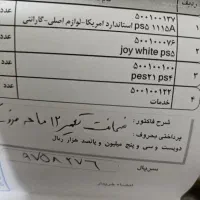 ردیف
عدد
۵۰۰۱۰۰۱۳۷
ps۵ ۱۱۱۵A استاندارد امریکا-لوازم اصلی-گارانتی
عدد
۵۰۰۱۰۰۰۷۶
joy white ps۵
۲
عدد
۵۰۰۱۰۰۱۰۰
pes۲۱ ps۴
۳
عدد
۵۰۰۱۰۰۱۲۲
خدمات
۴
شرح فاکتور: ضمانت تعمیر ۱۲ ماهه
پرداختی بحروف:
دویست و سی و پنج میلیون و پانصد هزار ریال
سریال
۹۷۵۸۲۷۶
امضاء خریدار